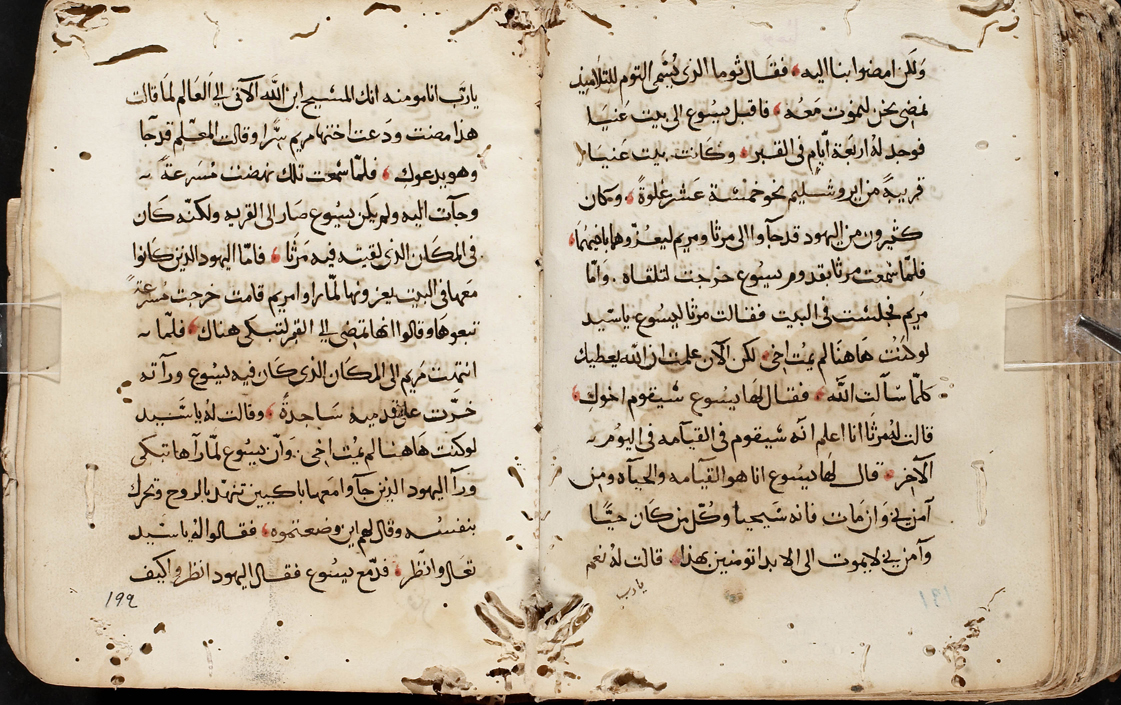 ولكن امضوا بنا اليه، فقال ثوما الذى يسمى التوم للتلاميذ
نمضى نحن لنموت معه، فاقبل يسوع الى بيت عنيا
فوجد له اربعة ايام فى القبر، وكانت بيت عنيا
قريبة من ايروشليم نحو خمسة عشر غلوة، وكان
كثيرون من اليهود قد جآوا الى مرثا ومريم ليعزوهما باخيهما،
فلما سمعت مرثا بقدوم يسوع خرجت لتلقاه . واما
مريم فجلست فى البيت فقالت مرثا ليسوع ياسيد
لو كنت هاهنا لم يمت اخى، لكن الآن علمت ان الله يعطيك
كلما سآلت الله، فقال لها يسوع سيقوم اخوك،
قالت له مرثا انا اعلم انه سيقوم فى القيامه فى اليوم
الآخر، قال لها يسوع انا هو القيامه والحياه ومن
آمن بى وان مات فانه سيحيا وكل من كان حيا
وآمن بى لا يموت الى الابد اتومنين بهذا، قالت له نعم
يا رب
١٩١
يارب انا مومنه انك المسيح ابن الله الآتى الى العالم لما قالت
هذا مضت ودعت اختها مريم سرا وقالت المعلم قد جا
وهو يدعوك، فلما سمعت تلك نهضت مسرعة
وجآت اليه ولم يكن يسوع صار الى القريه ولكنه كان
فى المكان الذى لقيته فيه مرثا، فاما اليهود الذين كانوا
معها فى البيت يعزونها لما راوا مريم قامت خرجت مسرعة
تبعوها وقالوا انها تمضى الى القبر لتبكى هناك، فلما
انتهت مريم الى المكان الذى كان فيه يسوع ورآته
خرت على قدميه ساجدة، وقالت له ياسيد
لو كنت هاهنا لم يمت اخى . وان يسوع لما رآها تبكى
ورآ اليهود الذين جآوا معها باكيين تنهد بالروح وتحرك
بنفسه وقال لهم اين وضعتموه، فقالوا له ياسيد
تعال وانظر، فدمع يسوع فقال اليهود انظروا كيف
١٩٩